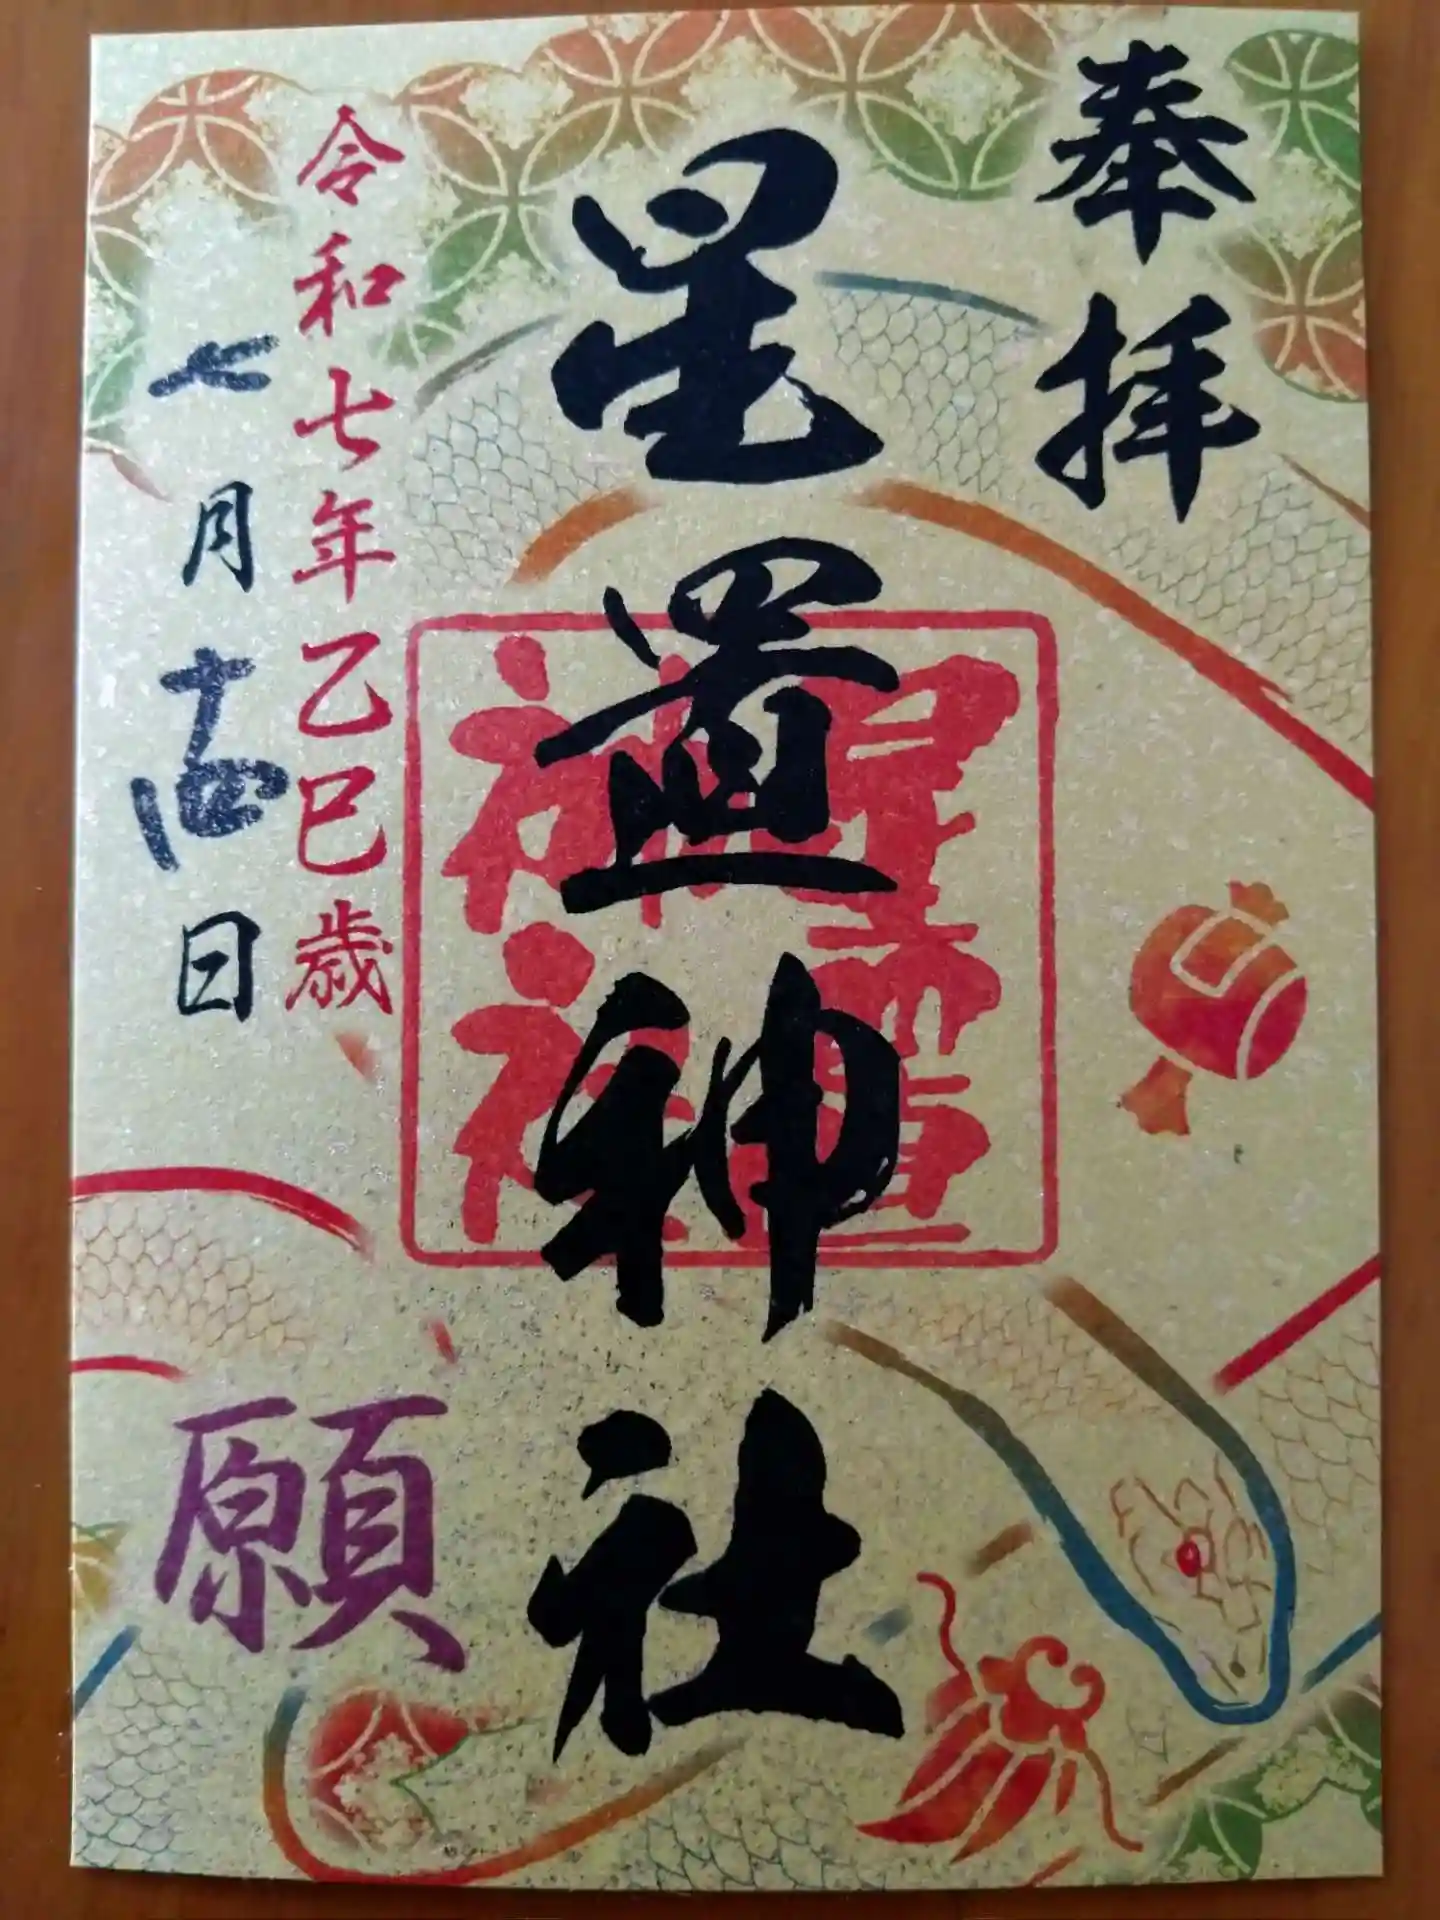 奉拝
星置神社
星置
神社
令和七年乙巳歳
七月十四日
願